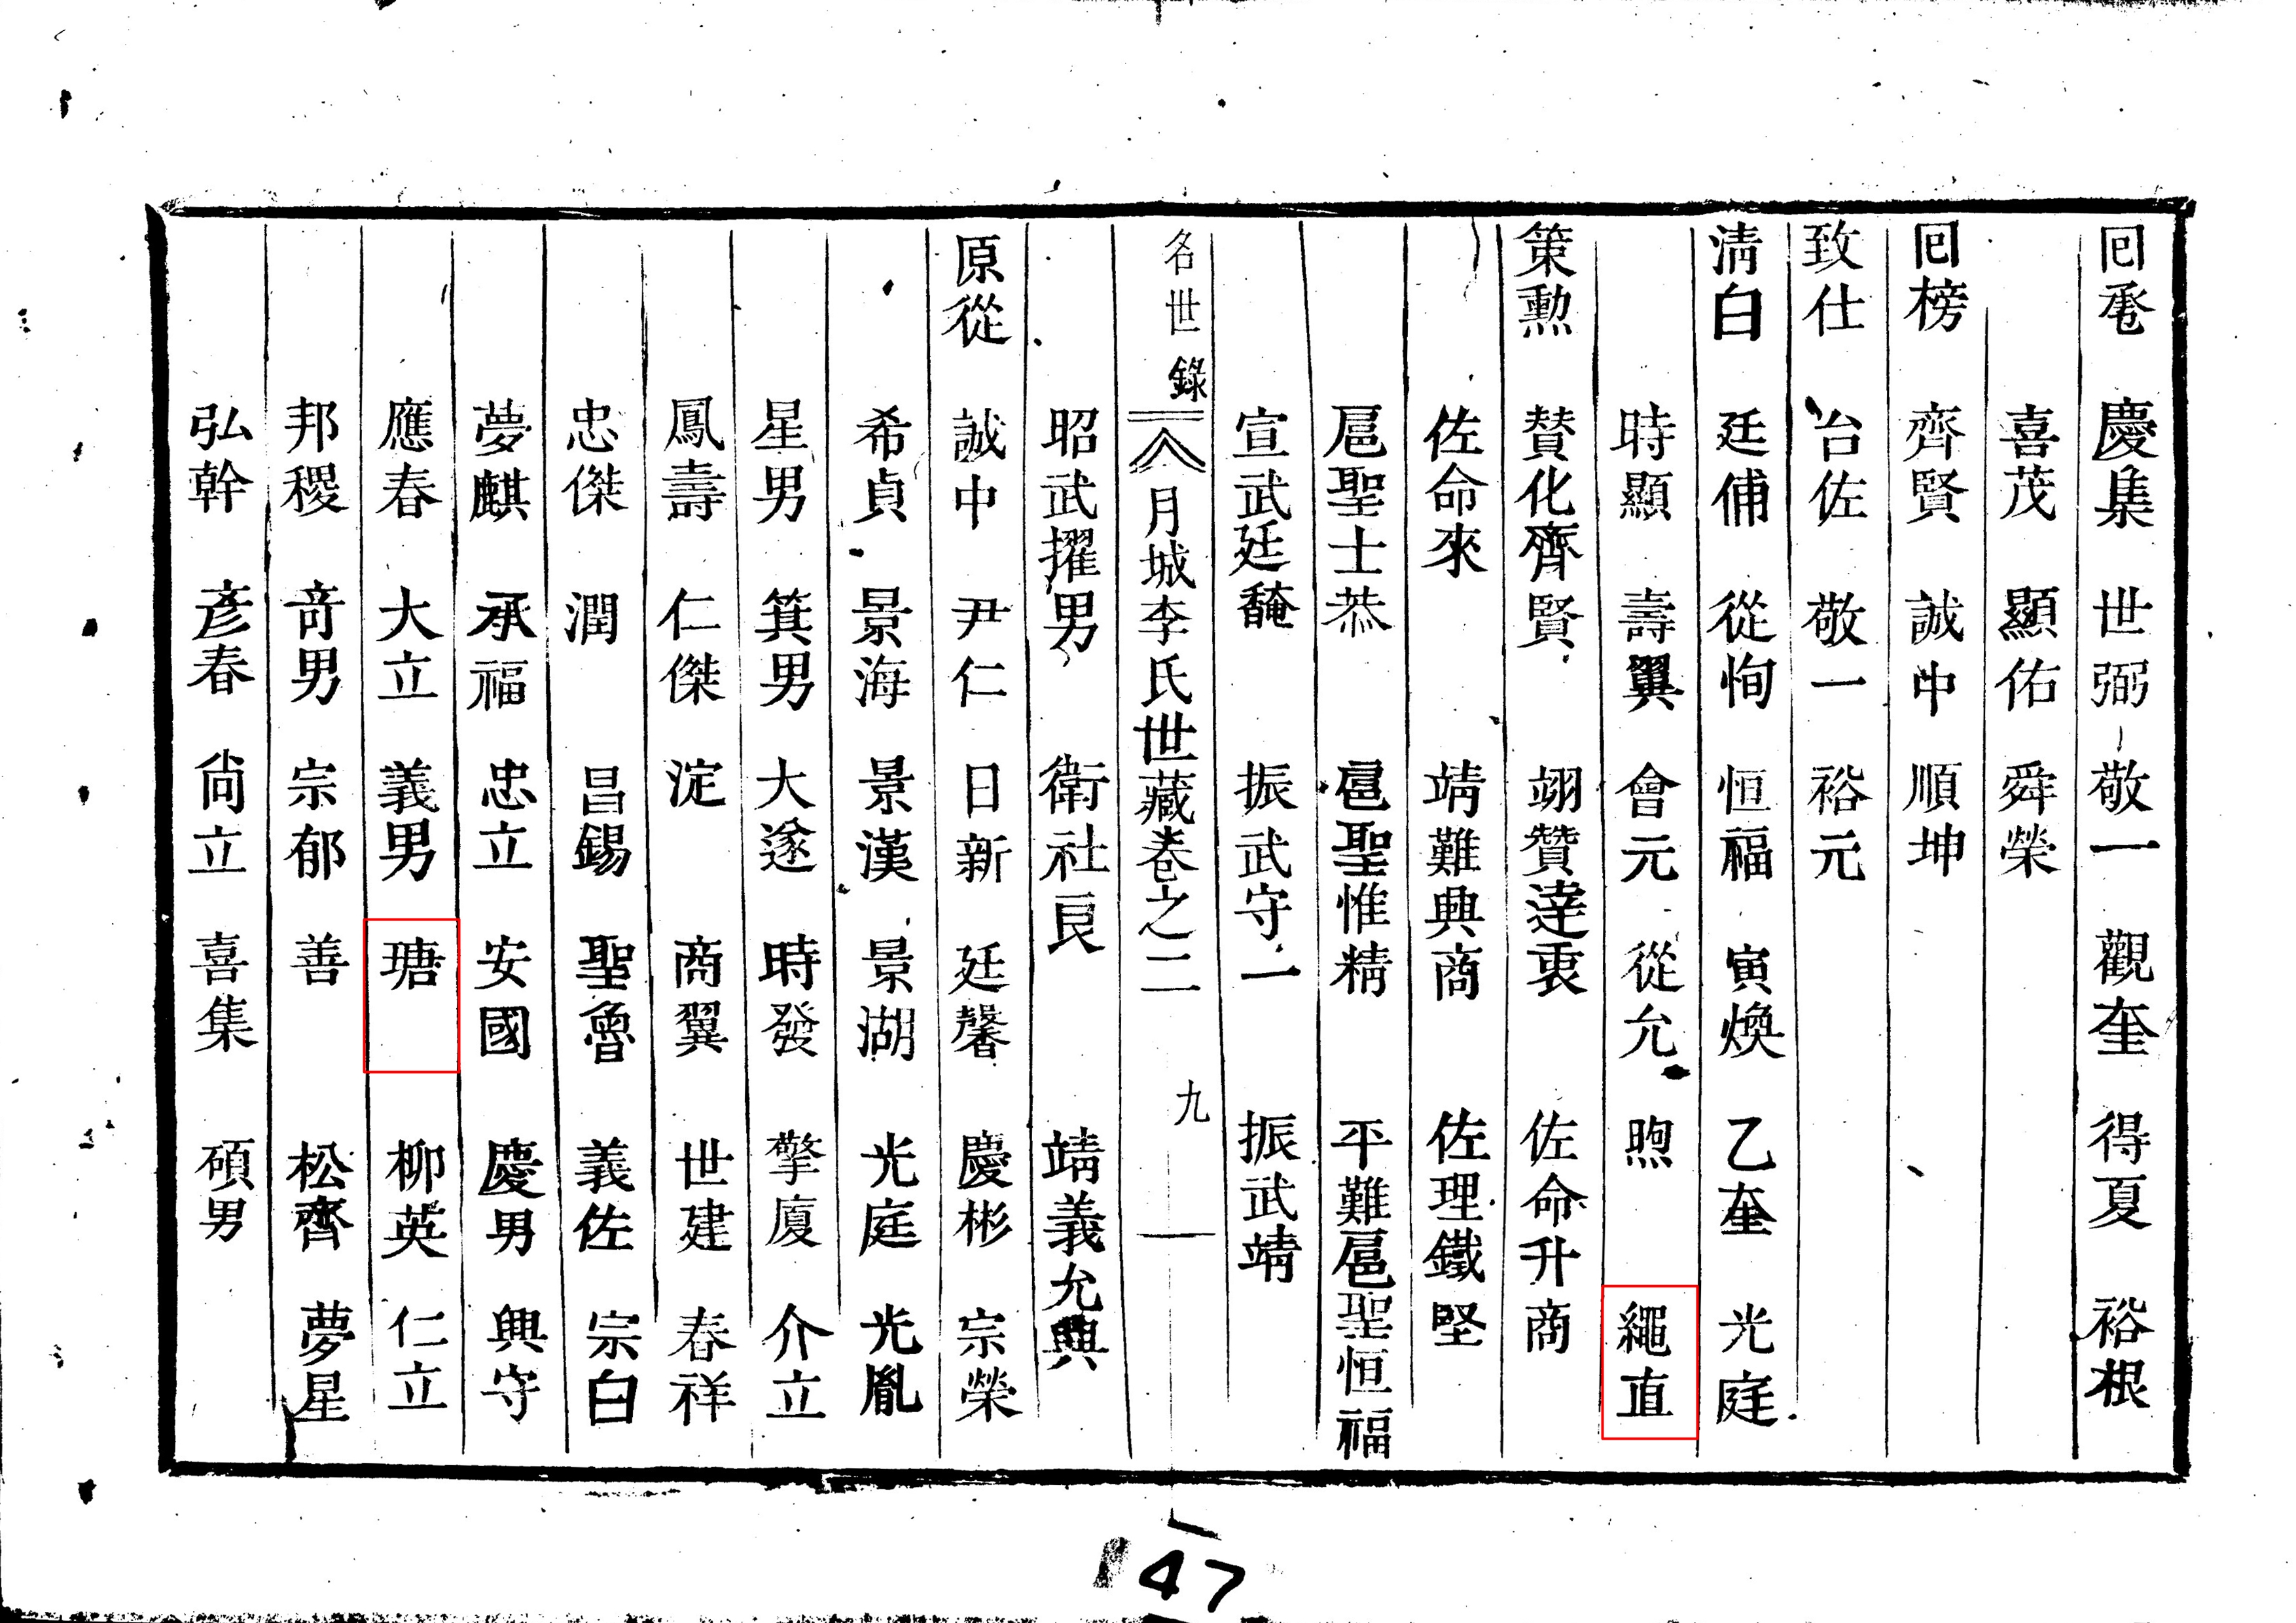 回巹 慶集 世弼 敬一 觀奎 得夏 裕根
喜茂 顯佑 舜榮
回榜 齊賢 誠中 順坤
致仕 台佐 敬一 裕元
淸白 廷俌 從恂 恒福 寅煥 乙奎 光庭
時顯 壽翼 會元 從允 煦 繩直
策勲 賛化齊賢 翊贊達衷 佐命升商
佐命來 靖難興商 佐理鐵堅
扈聖士恭 扈聖惟精 平難扈聖恒福
宣武廷馣 振武守一 振武靖
名世錄 月城李氏世藏卷之二 九
昭武擢男 衛社良 靖義允興
原從 誠中 尹仁 日新 廷馨 慶彬 宗榮
希貞 景海 景漢 景湖 光庭 光胤
星男 箕男 大遂 時發 擎廈 介立
鳳壽 仁傑 淀 商翼 世建 春祥
忠傑 潤 昌錫 聖魯 義佐 宗白
夢麒 承福 忠立 安國 慶男 興守
應春 大立 義男 瑭 柳英 仁立
邦稷 竒男 宗郁 善 松齊 夢星
弘幹 彥春 尙立 喜集 碩男
47